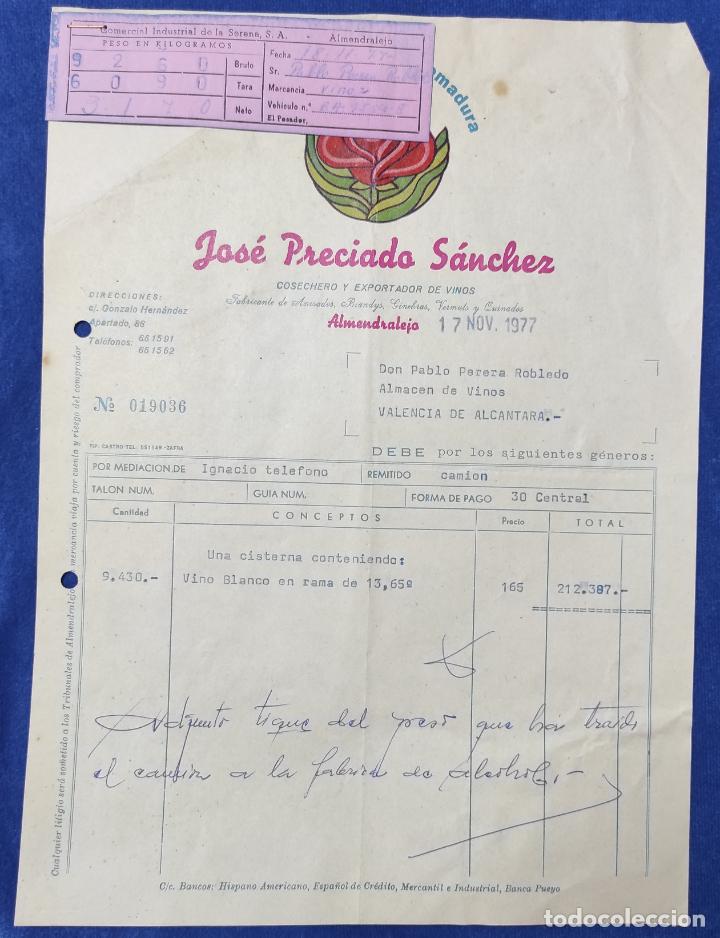 Comercial Industrial de la Serena, S. A. - Almendralejo
PESO EN KILOGRAMOS
9 2 6 0 Bruto
6 0 9 0 Tara
3 1 7 0 Neto
Fecha
Sr. Pablo
Mercancia vinos
Vehiculo n.º
El Pesador,
emadura
José Preciado Sánchez
COSECHERO Y EXPORTADOR DE VINOS
Fabricante de Anisados, Brandys, Ginebras, Vermuts y Quinados
Almendralejo 17 NOV. 1977
DIRECCIONES:
c/. Gonzalo Hernández
Apartado, 86
Teléfonos: 66 15 91
66 15 62
Don Pablo Perera Robledo
Almacen de Vinos
VALENCIA DE ALCANTARA.-
Nº 019036
TIP. CASTRO-TEL. 551149-ZAFRA
DEBE por los siguientes géneros:
POR MEDIACION DE Ignacio telefono REMITIDO camion
TALON NUM. GUIA NUM. FORMA DE PAGO 30 Central
Cantidad CONCEPTOS Precio TOTAL
Una cisterna conteniendo:
9.430.- Vino Blanco en rama de 13,65º 165 212.387.-
Adjunto tique del peso que ha traido
el camion a la fabrica de alcohol.-
Cualquier litigio será sometido a los Tribunales de Almendralejo mercancia viaja por cuenta y riesgo del comprador
C/c. Bancos: Hispano Americano, Español de Crédito, Mercantil e Industrial, Banca Pueyo
todocoleccion